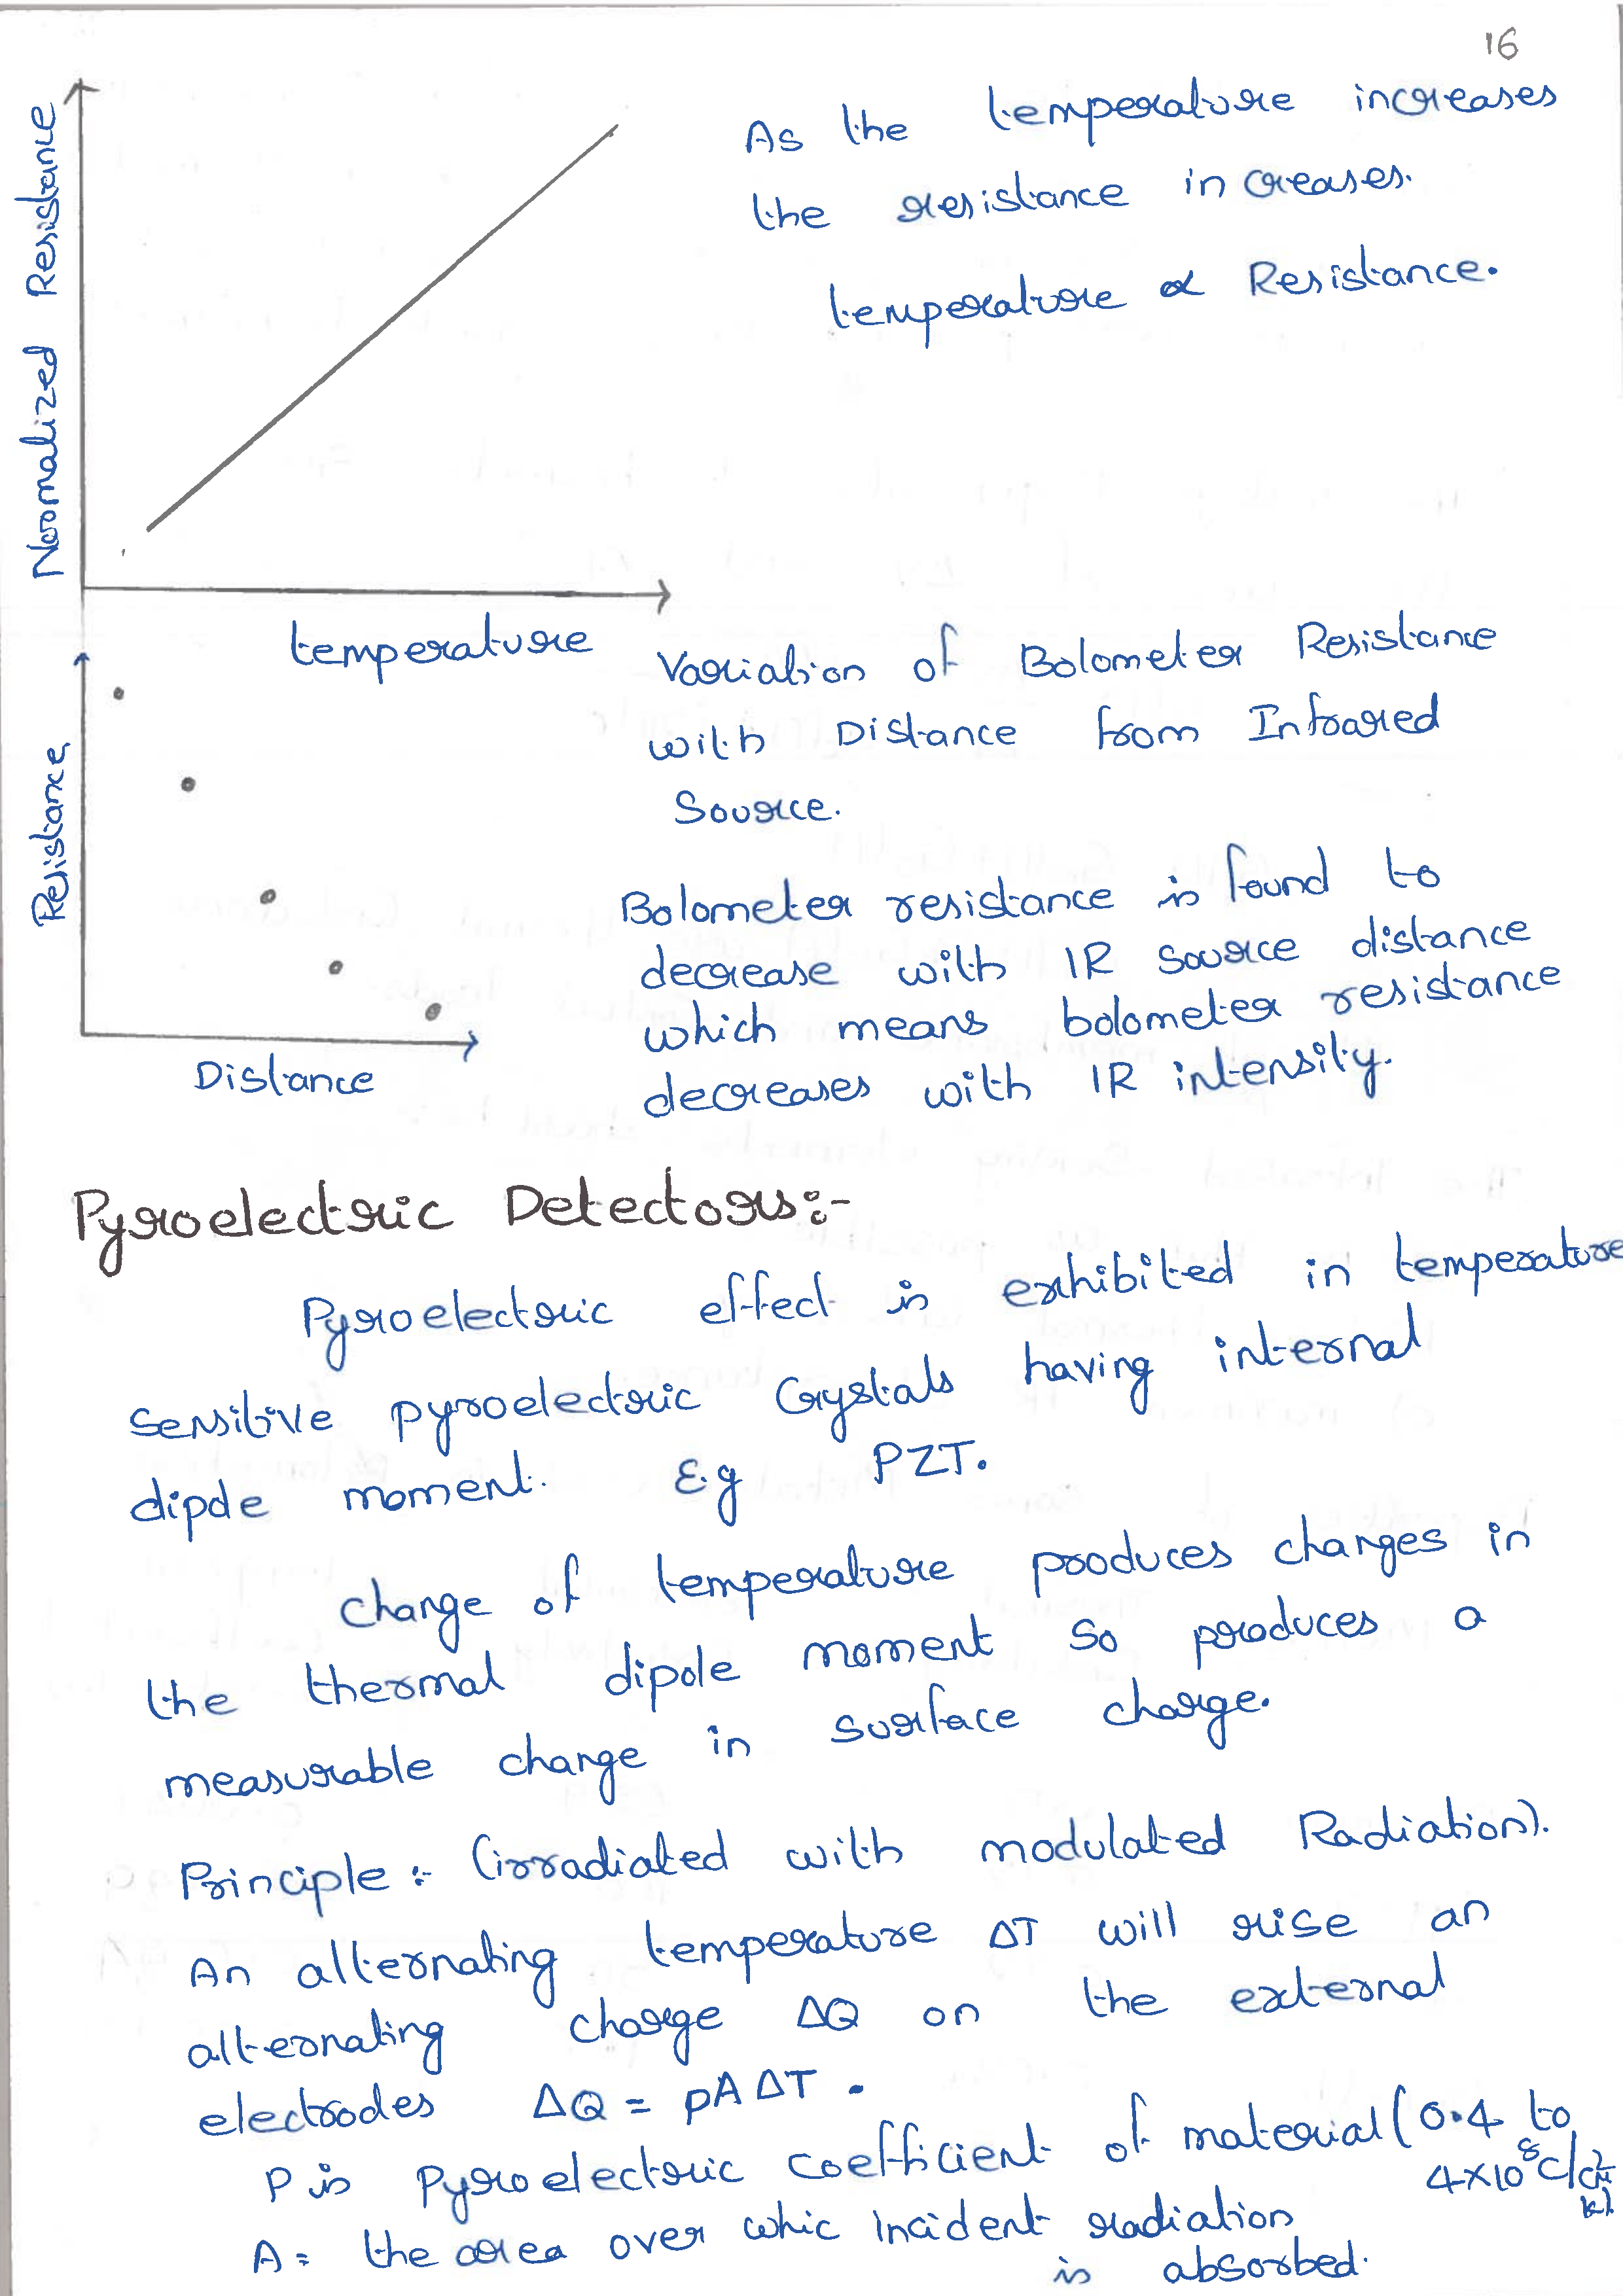 16
Normalized Resistance
As the temperature increases
the resistance increases.
temperature ∝ Resistance.
temperature
Resistance
Variation of Bolometer Resistance
with Distance from Infrared
Source.
Bolometer resistance is found to
decrease with IR source distance
which means bolometer resistance
decreases with IR intensity.
Distance
Pyroelectric Detectors:-
Pyroelectric effect is exhibited in temperature
sensitive pyroelectric Crystals having internal
dipole moment. E.g PZT.
change of temperature produces changes in
the thermal dipole moment so produces a
measurable change in surface charge.
Principle :- (irradiated with modulated Radiation).
An alternating temperature ΔT will rise an
alternating charge ΔQ on the external
electrodes ΔQ = pAΔT.
P is Pyroelectric coefficient of material (0.4 to
4×10⁸C/cm²
k).
A = the area over whic incident radiation
is absorbed.